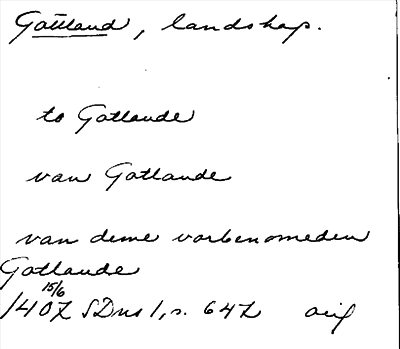 Gottland, landskap.
to Gotlande
van Gotlande
van deme vorbenomeden
Gotlande
15/6
1407 SDns 1, s. 647 orig